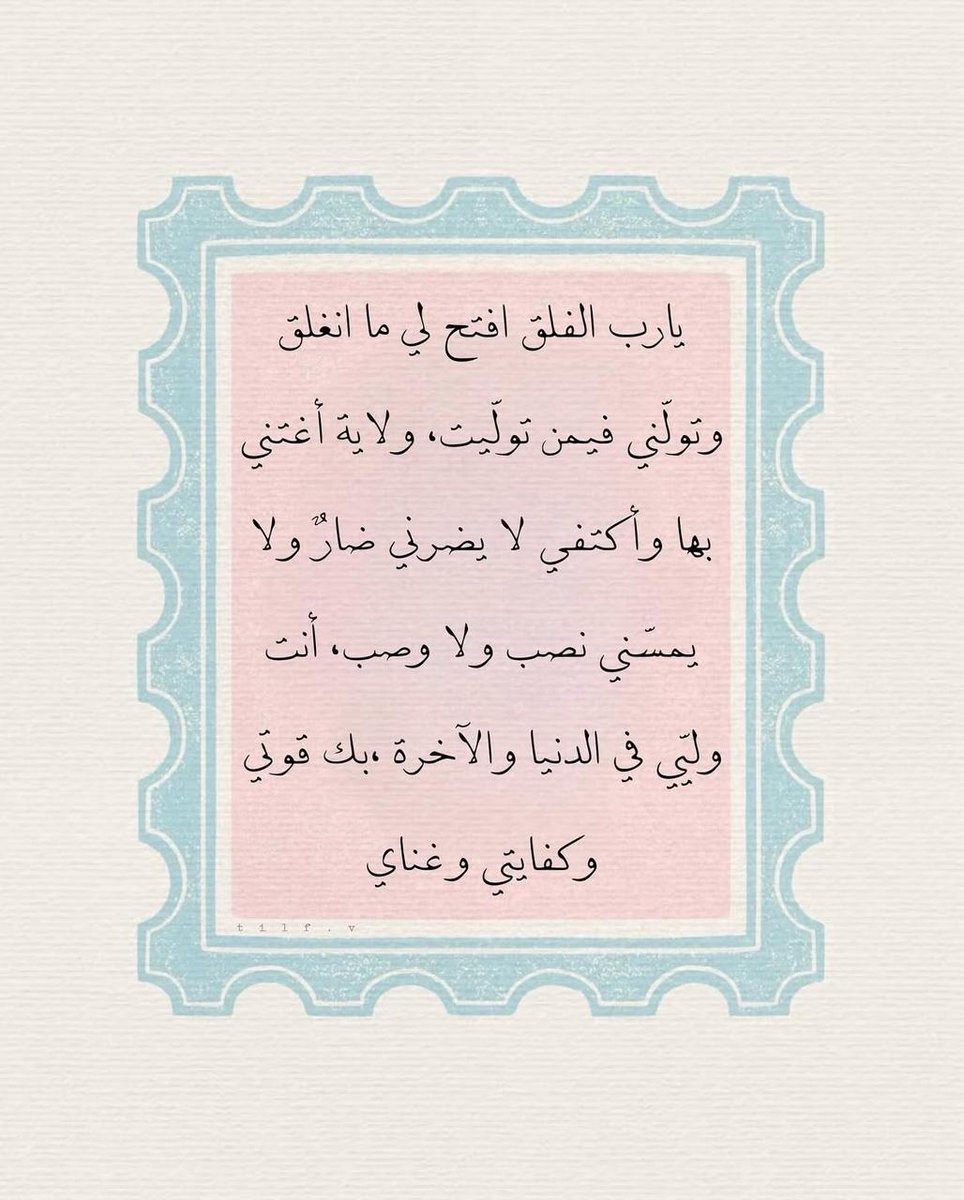 يارب الفلق افتح لي ما انغلق
وتولّني فيمن تولّيت، ولاية أغتني
بها وأكتفي لا يضرني ضارٌ ولا
يمسّني نصب ولا وصب، أنت
وليّي في الدنيا والآخرة ،بك قوتي
وكفايتي وغناي
tilf.v